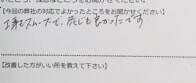 【今回の弊社の対応でよかったところをお聞かせください】
工事もスムーズで、感じも良かったです
【改善したほうがいい所を教えて下さい】